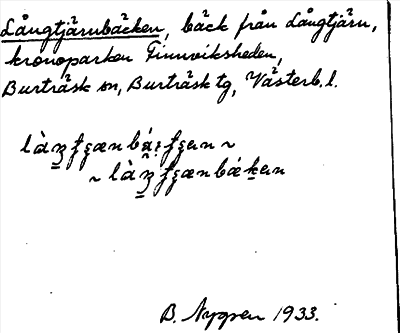 Långtjärnbäcken, bäck från Långtjärn,
kronoparken Finnviksheden,
Burträsk sn, Burträsk tg, Västerb. l.
B. Nygren 1933.